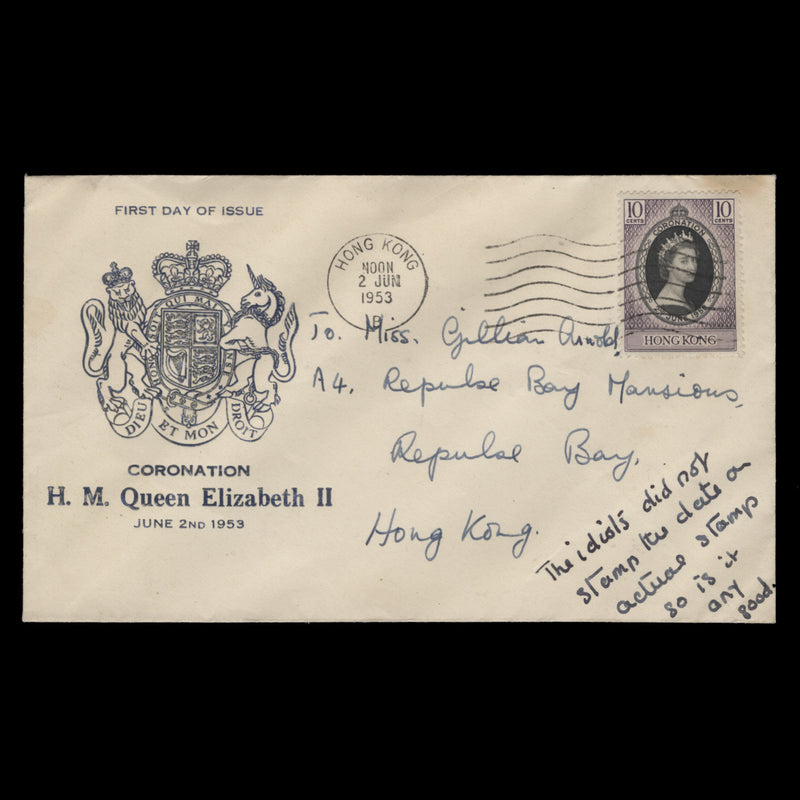 FIRST DAY OF ISSUE
QUI MAL
DIEU ET MON DROIT
CORONATION
H. M. Queen Elizabeth II
JUNE 2ND 1953
HONG KONG
NOON
2 JUN
1953
10 CENTS 10 CENTS
CORONATION
2 JUNE 1953
HONG KONG
To. Miss. Gillian Arnold,
A4. Repulse Bay Mansions,
Repulse Bay,
Hong Kong.
The idiots did not
stamp the date on
actual stamp
so is it
any
good.